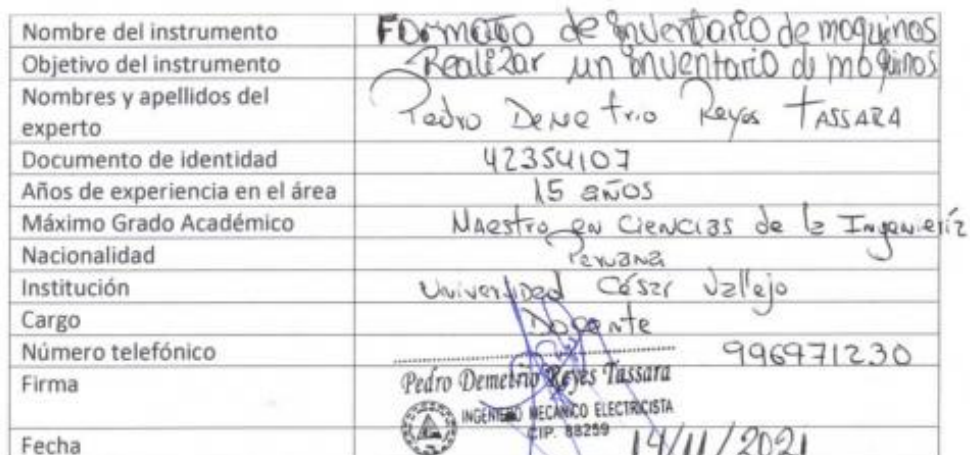 Nombre del instrumento Formato de inventario de maquinas
Objetivo del instrumento Realizar un inventario de maquinas
Nombres y apellidos del
experto Pedro Demetrio Reyes TASSARA
Documento de identidad 42354107
Años de experiencia en el área 15 años
Máximo Grado Académico Maestro en Ciencias de la Ingeniería
Nacionalidad Peruana
Institución Universidad César Vallejo
Cargo Docente
Número telefónico 996971230
Firma Pedro Demetrio Reyes Tassara
INGENIERO MECANICO ELECTRICISTA
CIP. 88259
Fecha 14/11/2021